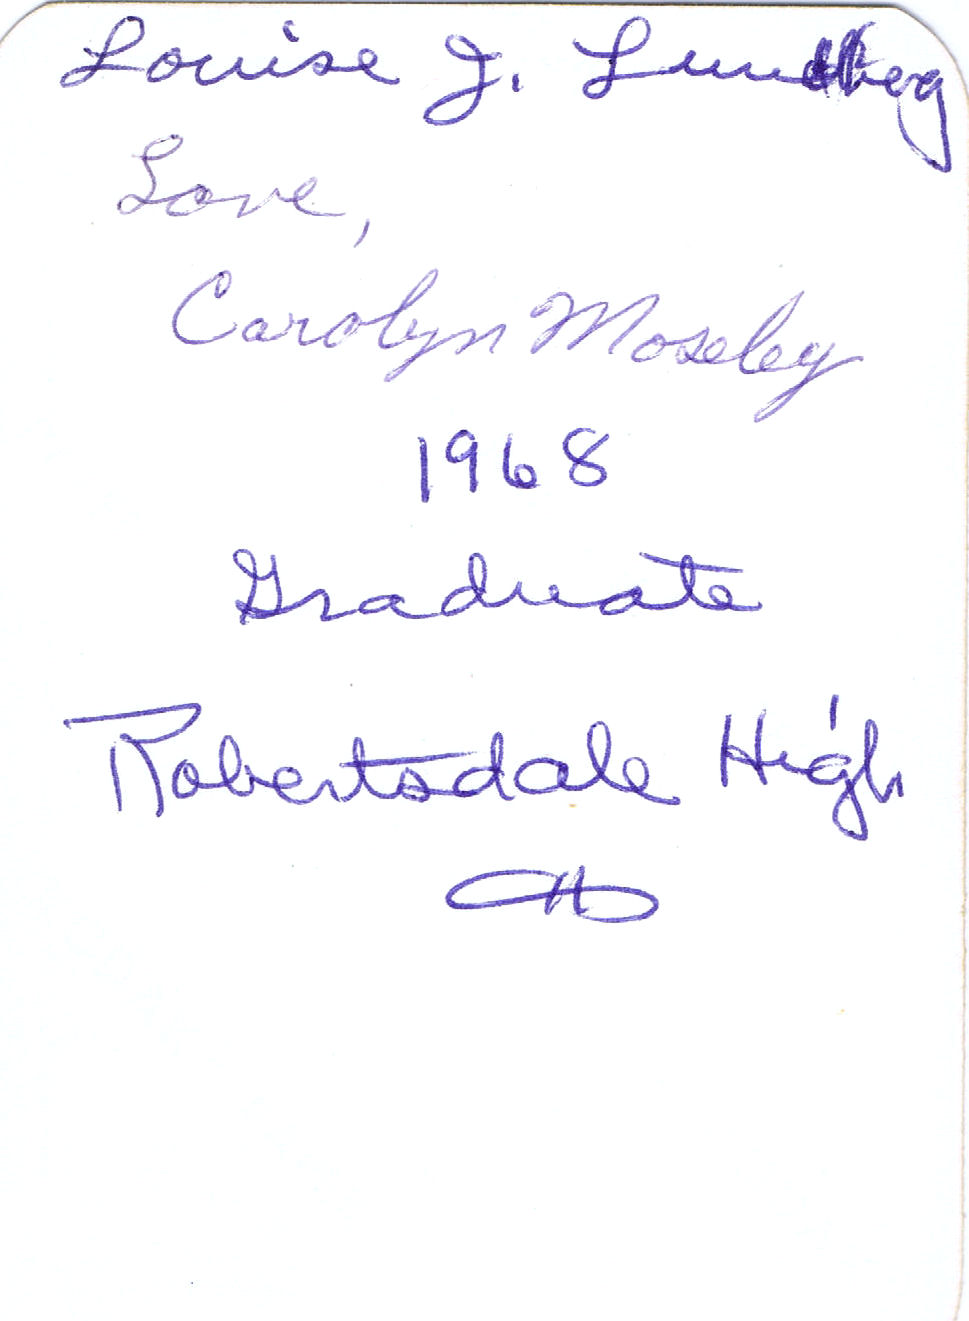 Louise J. Lundberg
Love,
Carolyn Moseley
1968
Graduate
Robertsdale High